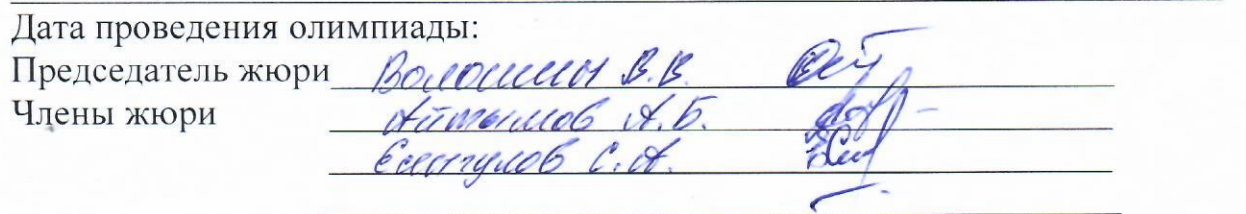 Дата проведения олимпиады:
Председатель жюри Волошин В.В.
Члены жюри Айтымов А.Б.
С.А.